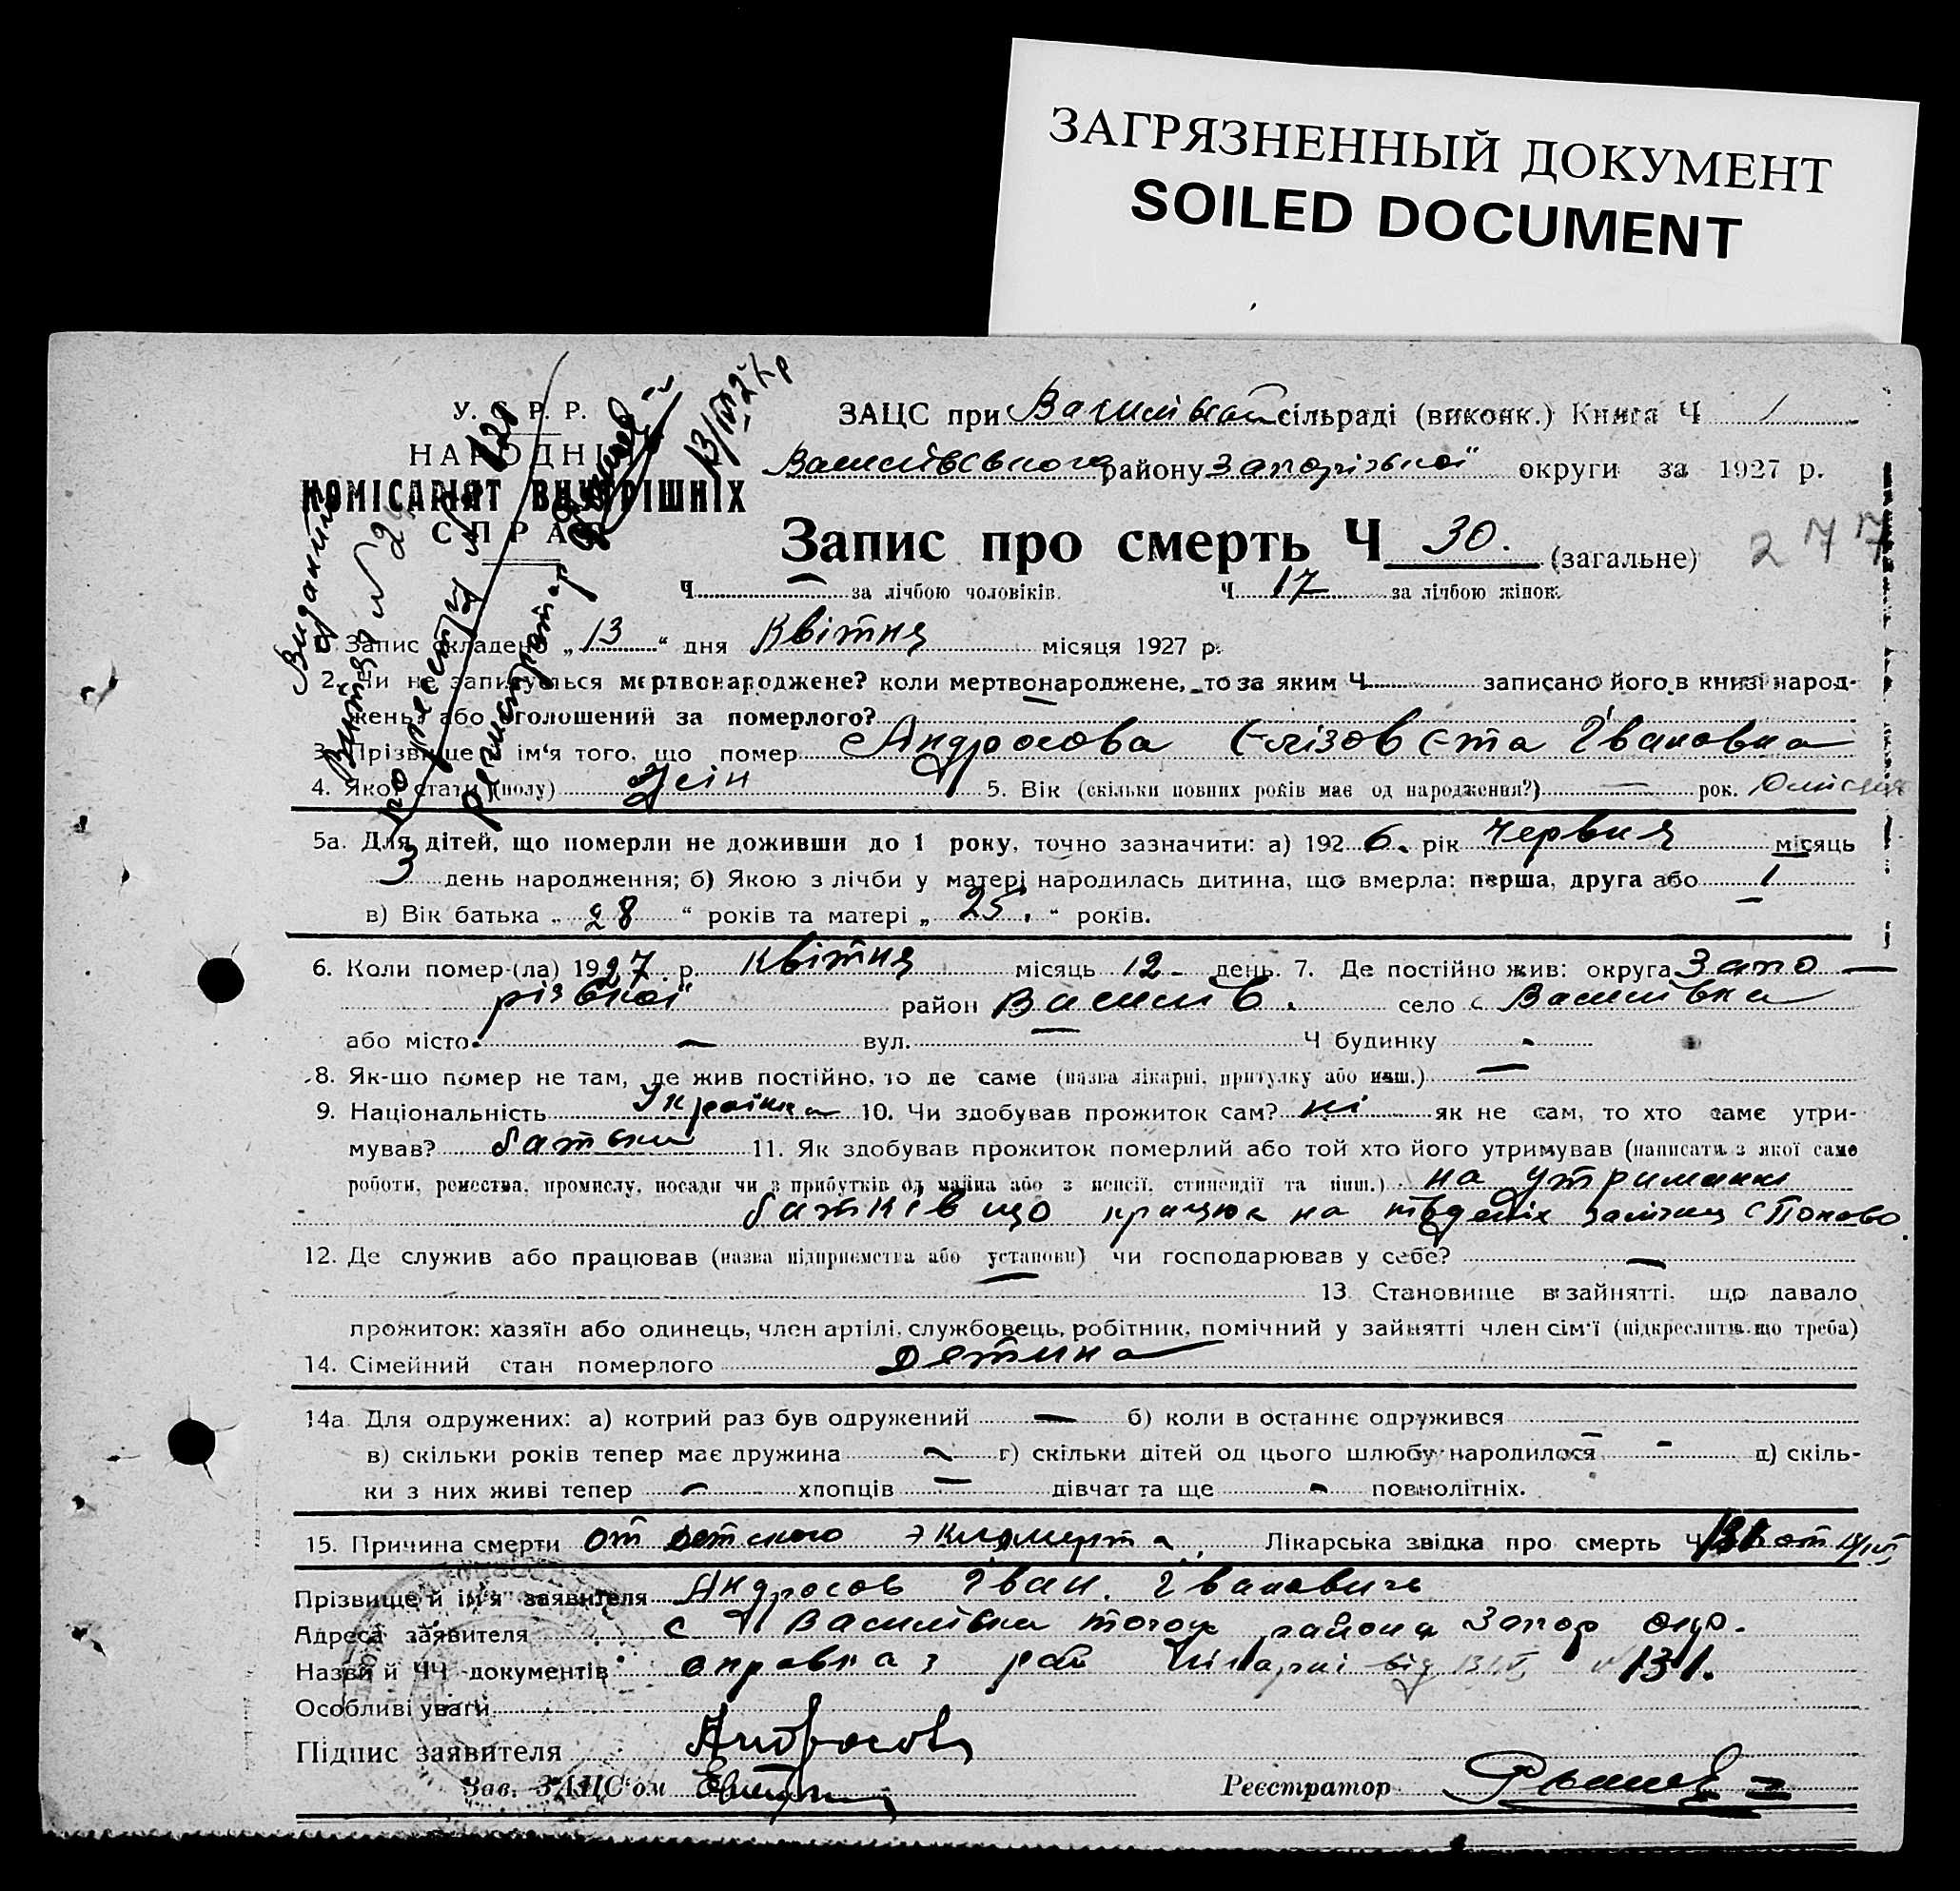 ЗАГРЯЗНЕННЫЙ ДОКУМЕНТ
SOILED DOCUMENT
У. С. Р. Р.
НАРОДНІЙ
КОМІСАРІЯТ ВНУТРІШНІХ
СПРАВ
ЗАЦС при сільраді (виконк.) Книга Ч 1
Василівського району Запорізької округи за 1927 р.
Запис про смерть Ч 30. (загальне)
277
Ч — за лічбою чоловіків. Ч 17 за лічбою жінок.
1. Запис складено „ 13 “ дня Квітня місяця 1927 р.
2. Чи не записується мертвонароджене? коли мертвонароджене, то за яким Ч — записано його в книзі народ-
жень? або оголошений за померлого?
3. Прізвище й ім'я того, що помер Андросова Єлізовєта Івановна
4. Якої стати (полу) 5. Вік (скільки повних років має од народження?) — рок.
5а. Для дітей, що померли не доживши до 1 року, точно зазначити: а) 192 6. рік Червня місяць
3 день народження; б) Якою з лічби у матері народилась дитина, що вмерла: перша, друга або 1
в) Вік батька „ 28 “ років та матері „ 25. “ років.
6. Коли помер-(ла) 1927 р. Квітня місяць 12 день. 7. Де постійно жив: округа Запо
різької район Василів. село с Василівка
або місто — вул. — Ч будинку -
8. Як-що помер не там, де жив постійно, то де саме (назва лікарні, притулку або инш.) —
9. Національність Українка 10. Чи здобував прожиток сам? ні як не сам, то хто саме утри-
мував? батьки 11. Як здобував прожиток померлий або той хто його утримував (написати з якої саме
роботи, ремества, промислу, посади чи з прибутків од майна або з пенсії, стипендії та инш.) на утриманні
батьків що на
12. Де служив або працював (назва підприємства або установи) чи господарював у себе? —
— 13 Становище в зайнятті, що давало
прожиток: хазяїн або одинець, член артілі, службовець, робітник, помічний у зайнятті член сім'ї (підкреслити що треба)
14. Сімейний стан померлого Детина
14а Для одружених: а) котрий раз був одружений — б) коли в останнє одружився
в) скільки років тепер має дружина — г) скільки дітей од цього шлюбу народилося — д) скіль-
ки з них живі тепер — хлопців — дівчат та ще — повнолітніх.
15. Причина смерти от детского Лікарська звідка про смерть Ч 131 от
Прізвище й ім'я заявителя Андросов Іван Іванович
Адреса заявителя с Василівка того ж района Запор окр.
Назви й ЧЧ документів справка з рай лікарні від 131.
Особливі уваги
Підпис заявителя Андросов
Зав. ЗАЦС'ом
Реєстратор